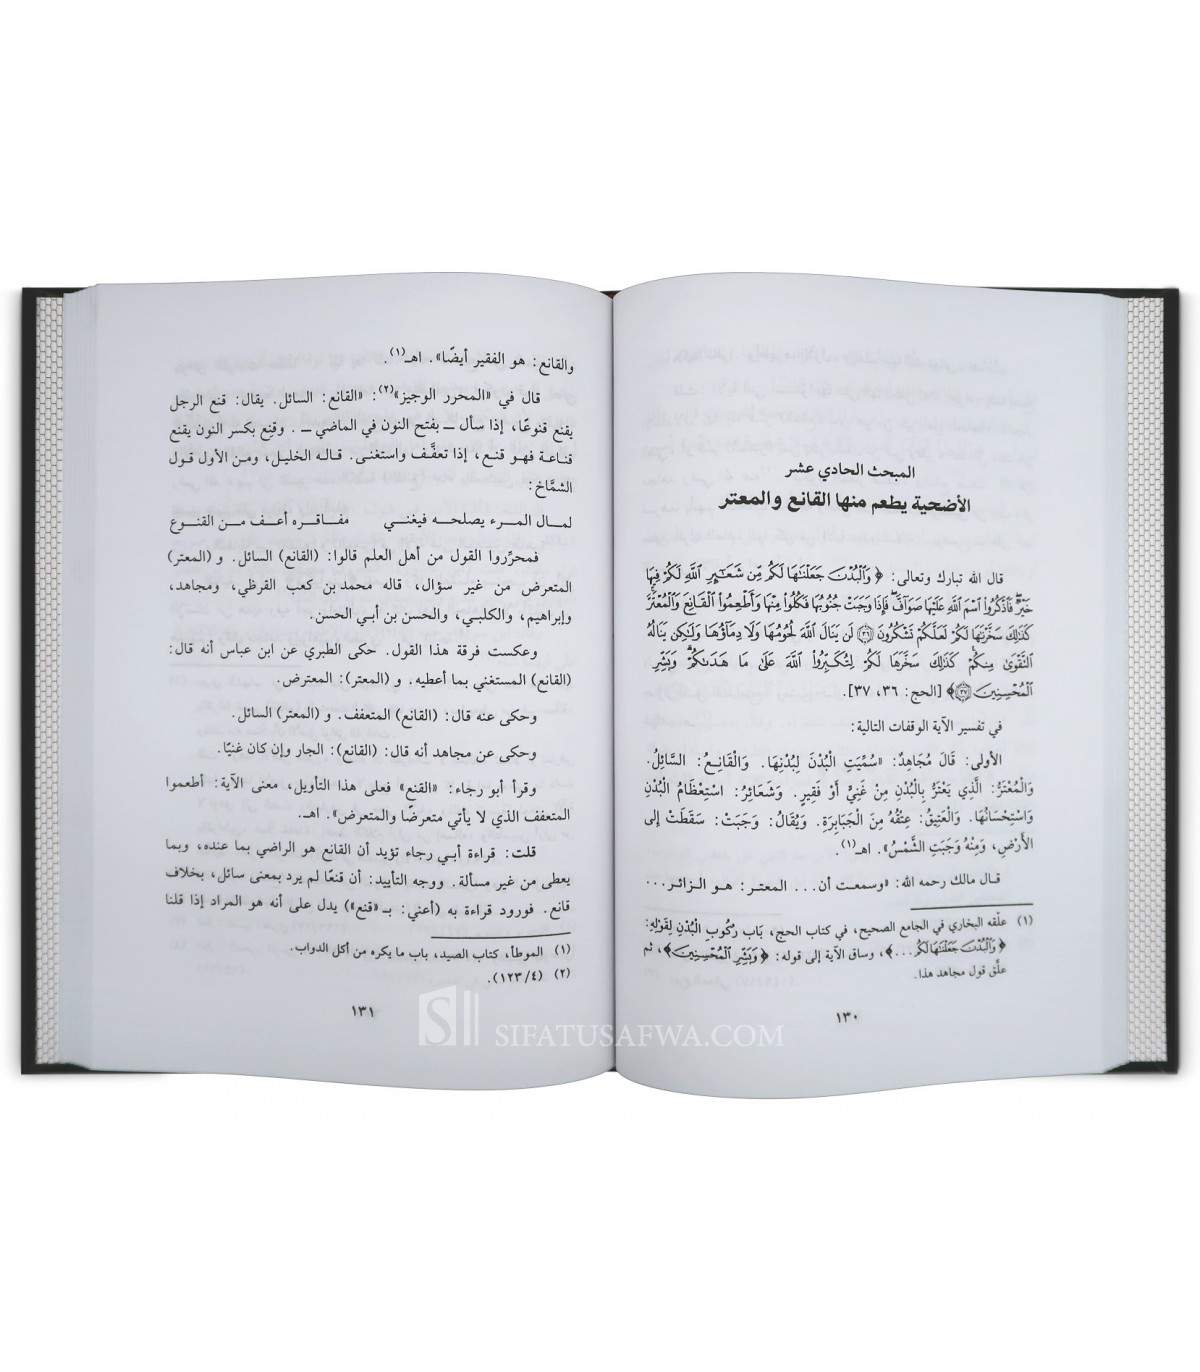 المبحث الحادي عشر
الأضحية يطعم منها القانع والمعتر
قال الله تبارك وتعالى: ﴿وَٱلْبُدْنَ جَعَلْنَٰهَا لَكُم مِّن شَعَٰٓئِرِ ٱللَّهِ لَكُمْ فِيهَا
خَيْرٌ ۖ فَٱذْكُرُوا۟ ٱسْمَ ٱللَّهِ عَلَيْهَا صَوَآفَّ ۖ فَإِذَا وَجَبَتْ جُنُوبُهَا فَكُلُوا۟ مِنْهَا وَأَطْعِمُوا۟ ٱلْقَانِعَ وَٱلْمُعْتَرَّ ۚ
كَذَٰلِكَ سَخَّرْنَٰهَا لَكُمْ لَعَلَّكُمْ تَشْكُرُونَ ﴿٣٦﴾ لَن يَنَالَ ٱللَّهَ لُحُومُهَا وَلَا دِمَآؤُهَا وَلَٰكِن يَنَالُهُ
ٱلتَّقْوَىٰ مِنكُمْ ۚ كَذَٰلِكَ سَخَّرَهَا لَكُمْ لِتُكَبِّرُوا۟ ٱللَّهَ عَلَىٰ مَا هَدَىٰكُمْ ۗ وَبَشِّرِ
ٱلْمُحْسِنِينَ ﴿٣٧﴾﴾ [الحج: ٣٦، ٣٧].
في تفسير الآية الوقفات التالية:
الأولى: قَالَ مُجَاهِدٌ: «سُمِّيَتِ الْبُدْنَ لِبُدْنِهَا. وَالْقَانِعُ: السَّائِلُ.
وَالْمُعْتَرُّ: الَّذِي يَعْتَرُّ بِالْبُدْنِ مِنْ غَنِيٍّ أَوْ فَقِيرٍ. وَشَعَائِرُ: اسْتِعْظَامُ الْبُدْنِ
وَاسْتِحْسَانُهَا. وَالْعَتِيقُ: عِتْقُهُ مِنَ الْجَبَابِرَةِ. وَيُقَالُ: وَجَبَتْ: سَقَطَتْ إِلى
الأَرْضِ، وَمِنْهُ وَجَبَتِ الشَّمْسُ». اهـ(١).
قال مالك رحمه الله: «وسمعت أن... المعتر: هو الزائر...
(١) علّقه البخاري في الجامع الصحيح، في كتاب الحج، بَاب رُكُوبِ الْبُدْنِ لِقَوْلِهِ:
﴿وَٱلْبُدْنَ جَعَلْنَٰهَا لَكُمْ...﴾، وساق الآية إلى قوله: ﴿وَبَشِّرِ ٱلْمُحْسِنِينَ﴾، ثم
علَّق قول مجاهد هذا.
١٣٠
والقانع: هو الفقير أيضًا». اهـ(١).
قال في «المحرر الوجيز»(٢): «القانع: السائل. يقال: قنع الرجل
يقنع قنوعًا، إذا سأل ــ بفتح النون في الماضي ــ. وقنِع بكسر النون يقنع
قناعة فهو قنع، إذا تعفَّف واستغنى. قاله الخليل، ومن الأول قول
الشمَّاخ:
لمال المرء يصلحه فيغني مفاقره أعف من القنوع
فمحرِّروا القول من أهل العلم قالوا: (القانع) السائل. و (المعتر)
المتعرض من غير سؤال، قاله محمد بن كعب القرظي، ومجاهد،
وإبراهيم، والكلبي، والحسن بن أبي الحسن.
وعكست فرقة هذا القول. حكى الطبري عن ابن عباس أنه قال:
(القانع) المستغني بما أعطيه. و (المعتر): المعترض.
وحكى عنه قال: (القانع) المتعفف. و (المعتر) السائل.
وحكى عن مجاهد أنه قال: (القانع): الجار وإن كان غنيًّا.
وقرأ أبو رجاء: «القنع» فعلى هذا التأويل، معنى الآية: أطعموا
المتعفف الذي لا يأتي متعرضًا والمتعرض». اهـ.
قلت: قراءة أبي رجاء تؤيد أن القانع هو الراضي بما عنده، وبما
يعطى من غير مسألة. ووجه التأييد: أن قنعًا لم يرد بمعنى سائل، بخلاف
قانع. فورود قراءة به (أعني: بـ «قنع») يدل على أنه هو المراد إذا قلنا
(١) الموطأ، كتاب الصيد، باب ما يكره من أكل الدواب.
(٢) (١٢٣/٤).
١٣١
SIFATUSAFWA.COM